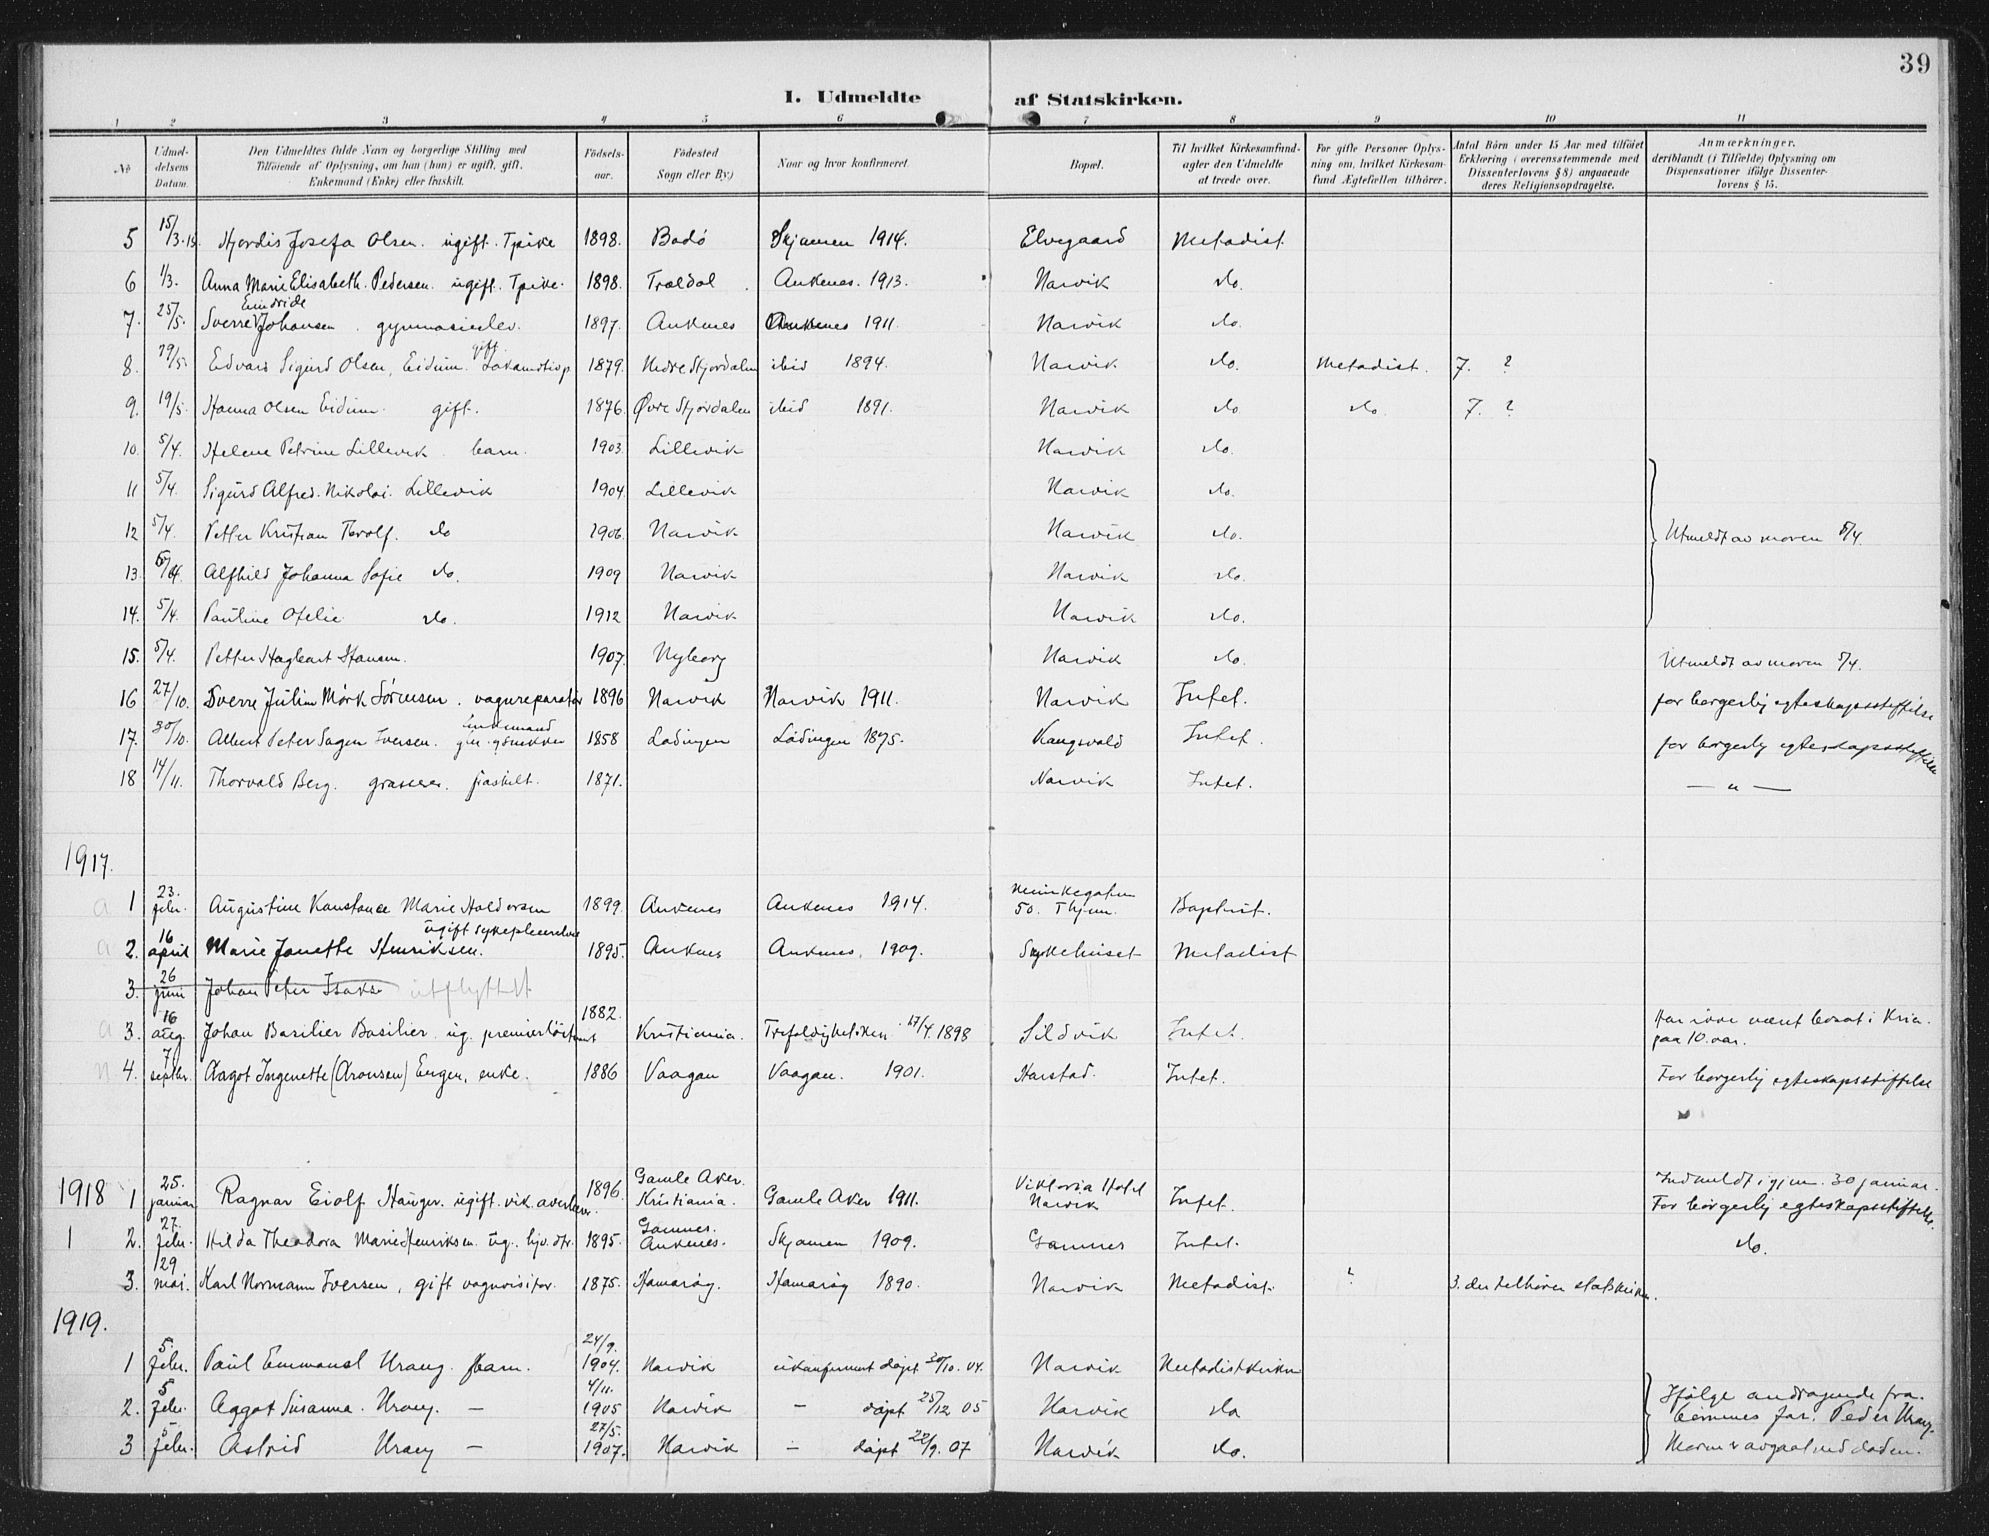 39
I. Udmeldte af Statskirken.
1 2 3 4 5 6 7 8 9 10 11
No
Udmel-
delsens
Datum.
Den Udmeldtes fulde Navn og borgerlige Stilling med
Tilföiende af Oplysning, om han (hun) er ugift, gift,
Enkemand (Enke) eller fraskilt.
Födsels-
aar.
Födested
Sogn eller By.)
Naar og hvor konfirmeret.
Bopæl.
Til hvilket Kirkesamfund-
agter den Udmeldte
at træde over.
For gifte Personer Oplys-
ning om, hvilket Kirkesam-
fund Ægtefællen tilhörer.
Antal Börn under 15 Aar med tilföiet
Erklæring (overensstemmende med
Dissenterlovens § 8) angaaende
deres Religionsopdragelse.
Anmærkninger,
deriblandt (i Tilfælde) Oplysning om
Dispensationer ifölge Dissenter-
lovens § 15.
5 15/3. Hjordis Josefa Olsen. ugift. Tpike 1898. Bodö Skjomen 1914. Elvegaard Metodist
6 1/3. Anna Marie Elisabeth. Pedersen. ugift. Tpike. 1898. Traldal Ankenes. 1913. Narvik do.
7. 25/5. Sverre Eindride Johansen. gymnasieelev. 1897. Ankenes Ankenes 1911. Narvik do.
8. 19/5. Edvard Sigurd Olsen, Eidum. gift. 1879. Nedre Stjordalen ibid 1894. Narvik do. Metodist. 7. ?
9. 19/5. Hanna Olsen Eidum. gift. 1876. Øvre Stjordalen ibid 1891. Narvik do do. 7. ?
10. 5/4. Helene Petrine Lillevik. barn. 1903. Lillevik Narvik do.
11 5/4. Sigurd Alfred. Nikolai. Lillevik 1904. Lillevik Narvik do.
12 5/4. Petter Kristian do 1906. Narvik Narvik do. Utmeldt av moren 5/4.
13. 5/4. Alfhild Johanna Sofie do. 1909 Narvik Narvik do.
14. 5/4. Pauline Ofelie do. 1912 Narvik Narvik do.
15. 5/4. Petter Hagbart Hansen. 1907. Nyborg Narvik do. Utmeldt av moren 5/4.
16 27/10. Sverre Julius Mörk Sörensen. vognreparatör 1896 Narvik Narvik 1911. Narvik Intet. for borgerlig egteskapsstiftelse
17. 30/10. Albert Peter Sagen Iversen. enkemand 1858 Lödingen Lödingen 1875. Intet. for borgerlig egteskapsstiftelse
18 14/11. Thorvald Berg. fraskilt. 1871. Narvik Intet. — " —
1917.
a 1 23. febr. Augustine Konstance Marie Haldorsen 1899. Ankenes Ankenes 1914. 50. Baptist.
a 2. 16 april Marie Janette Henriksen. ugift sykepleierske 1895. Ankenes Ankenes, 1909. Sykehuset Metodist
3. 26 juni Johan Peter Isaks utflyttet
a 3. 16 aug. Johan Basilier Basilier. ug. premierlöitnant 1882. Kristiania. 17/4. 1898 Sildvik Intet. Har ikke været bosat i Kria.
paa 10. aar.
n 4. 7 septbr. Aagot Ingenette (Aronsen) Engen, enke. 1886 Vaagan Vaagan. 1901. Harstad. Intet. For borgerlig egteskapsstiftelse
1918 1 25. januar Ragnar Eiolf Hauger. ugift. 1896. Gamle Aker. Kristiania. Gamle Aker 1911. Viktoria Hotel Narvik Intet. Indmeldt igjen. 30 januar.
For borgerlig egteskapsstiftelse.
1 2. 27. febr. Hilda Theodora Marie Henriksen. ug. 1895. Gamnes. Ankenes. Skjomen 1909. Gamnes Intet. do.
3. 129 mai. Karl Normann Iversen, gift vognvisitör. 1875. Hamaröy. Hamaröy 1890. Narvik Metodist. ? 3. der tilhörer statskirken.
1919.
1 5. febr. Paul Emmanuel Urang. barn. 24/9. 1904. Narvik ukonfirmert döpt 30/10. 04. Narvik Metodistkirken
2. 5 febr. Aagot Susanna. Urang. — 4/11. 1905 Narvik — döpt 25/12 05 Narvik do Ifölge andragende fra.
börnenes far. Peder Urang.
3 5 febr. Astrid Urang — 27/5. 1907. Narvik — döpt 22/9. 07 Narvik do. Moren er avgaat ved döden.